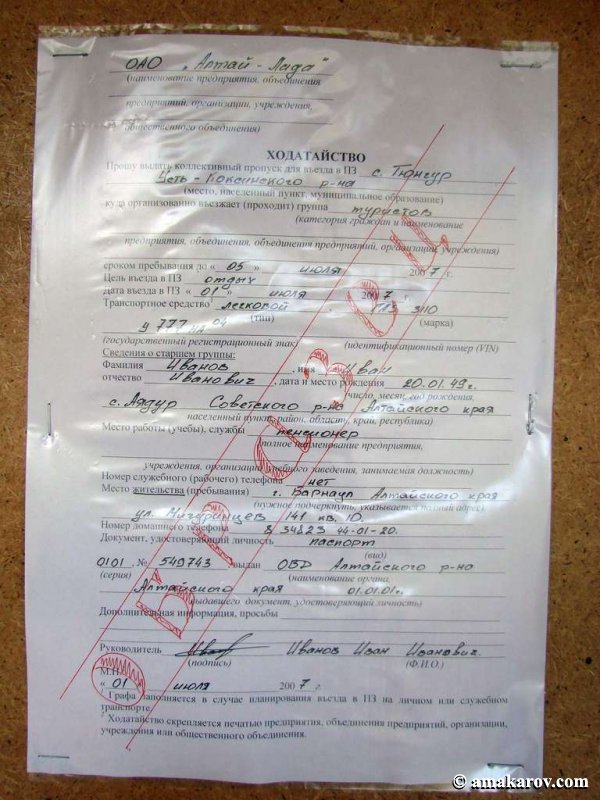 ОАО „Алтай-Лада"
(наименование предприятия, объединения
предприятий, организации, учреждения,
общественного объединения)
ХОДАТАЙСТВО
Прошу выдать коллективный пропуск для въезда в ПЗ с. Тюнгур
Усть-Коксинского р-на
(место, населенный пункт, муниципальное образование)
куда организованно въезжает (проходит) группа туристов
(категория граждан и наименование
предприятия, объединения, объединения предприятий, организации, учреждения)
сроком пребывания до « 05 » июля 2007 г.
Цель въезда в ПЗ отдых
Дата въезда в ПЗ « 01 » июля 2007 г.
Транспортное средство¹ легковой ГАЗ 3110
(тип) (марка)
У 777 НА 04
(государственный регистрационный знак) (идентификационный номер (VIN)
Сведения о старшем группы:
Фамилия Иванов, имя Иван
отчество Иванович, дата и место рождения 20.01.49г.
(число, месяц, год рождения,
с. Советского р-на Алтайского края
населенный пункт, район, область, край, республика)
Место работы (учебы), службы пенсионер
(полное наименование предприятия,
учреждения, организации, учебного заведения, занимаемая должность)
Номер служебного (рабочего) телефона нет
Место жительства (пребывания) г. Барнаул Алтайского края
(нужное подчеркнуть, указывается полный адрес)
ул. Мичуринцев 141 кв. 10.
Номер домашнего телефона 8 34823 44-01-20.
Документ, удостоверяющий личность паспорт
(вид)
0101, № 549743 выдан ОВД Алтайского р-на
(серия) (наименование органа,
Алтайского края 01.01.01г.
выдавшего документ, удостоверяющий личность)
Дополнительная информация, просьбы
Руководитель Иванов Иван Иванович.
(подпись) (Ф.И.О.)
М.П.²
« 01 июля 2007 г.
¹ Графа заполняется в случае планирования въезда в ПЗ на личном или служебном
транспорте.
² Ходатайство скрепляется печатью предприятия, объединения предприятий, организации,
учреждения или общественного объединения.
ОБРАЗЕЦ
© amakarov.com